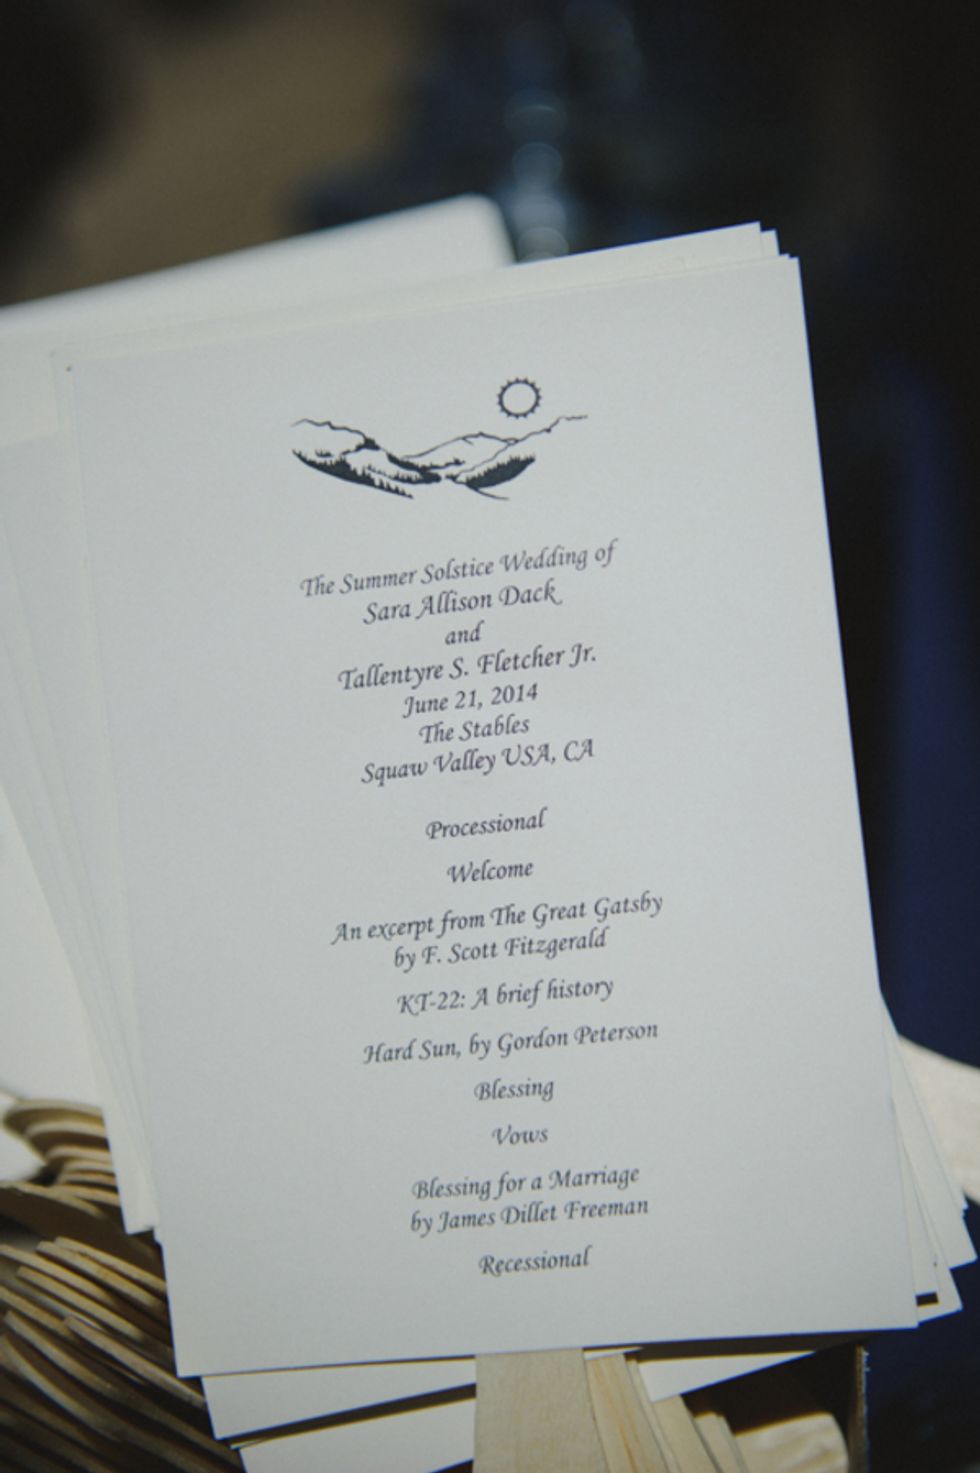 The Summer Solstice Wedding of
Sara Allison Dack
and
Tallentyre S. Fletcher Jr.
June 21, 2014
The Stables
Squaw Valley USA, CA
Processional
Welcome
An excerpt from The Great Gatsby
by F. Scott Fitzgerald
KT-22: A brief history
Hard Sun, by Gordon Peterson
Blessing
Vows
Blessing for a Marriage
by James Dillet Freeman
Recessional